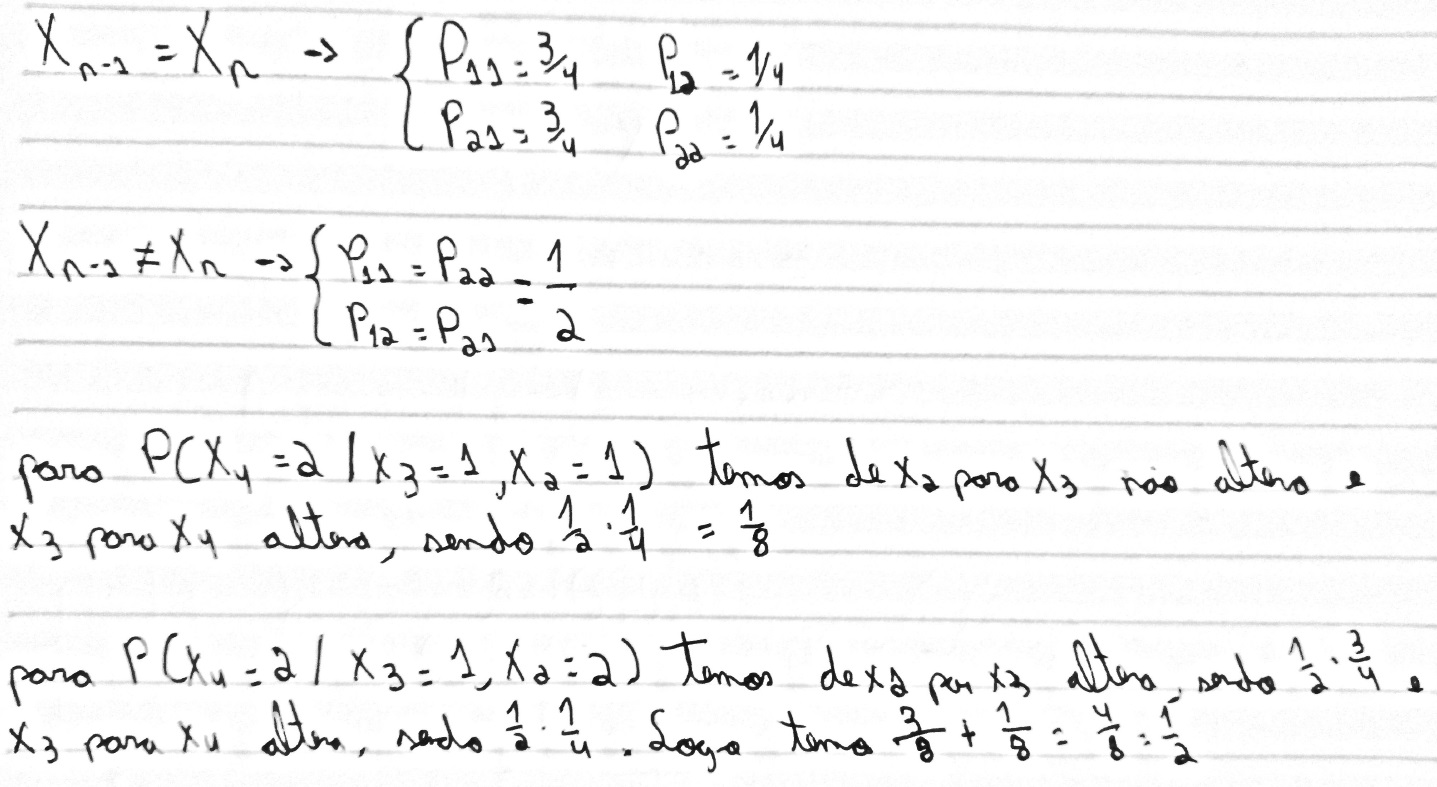 X_{n-1} = X_n → { P_{11} = 3/4 P_{12} = 1/4
P_{21} = 3/4 P_{22} = 1/4
X_{n-1} ≠ X_n → { P_{11} = P_{22} = 1/2
P_{12} = P_{21}
para P(X_4 = 2 / X_3 = 1, X_2 = 1) temos de X_2 para X_3 não altera e
X_3 para X_4 altera, sendo 1/2 · 1/4 = 1/8
para P(X_4 = 2 / X_3 = 1, X_2 = 2) temos de X_2 por X_3 altera, sendo 1/2 · 3/4 e
X_3 para X_4 altera, sendo 1/2 · 1/4. Logo temo 3/8 + 1/8 = 4/8 = 1/2